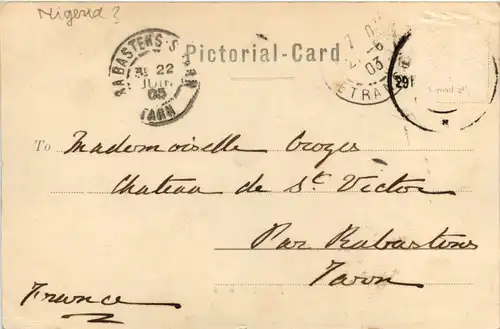 Nigeria?
Pictorial-Card
RABASTENS-S-TARN
22
JUIN
03
TARN
03
ETRAN
29
To Mademoiselle Crozes
Chateau de St Victor
Par Rabastens
Tarn
France